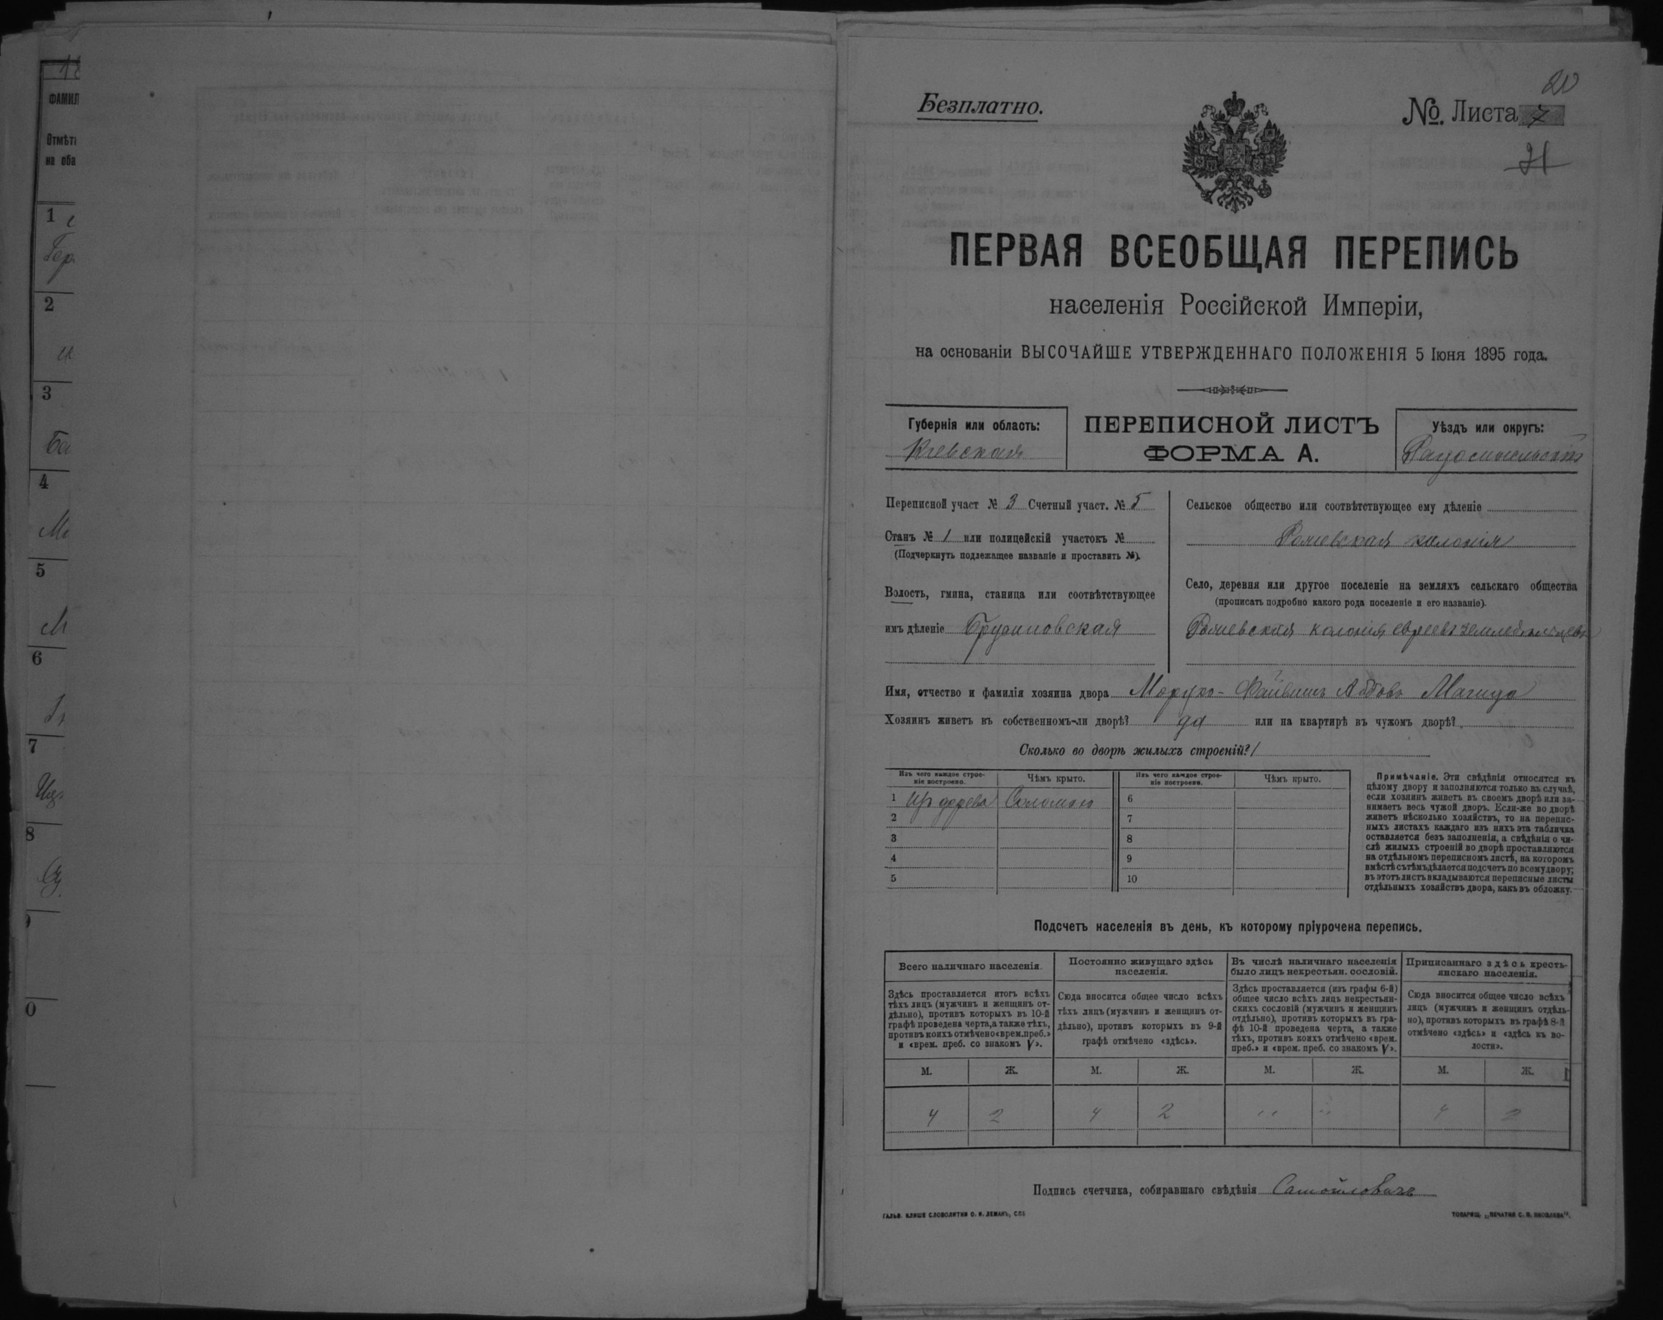 ФАМИЛ
Отмѣт
на оба
1
2
3
4
5
6
7
8
0
20
Безплатно.
№ Листа 7
21
ПЕРВАЯ ВСЕОБЩАЯ ПЕРЕПИСЬ
населенія Россійской Имперіи,
на основаніи ВЫСОЧАЙШЕ УТВЕРЖДЕННАГО ПОЛОЖЕНІЯ 5 Іюня 1895 года.
Губернія или область:
Кіевская
ПЕРЕПИСНОЙ ЛИСТЪ
ФОРМА А.
Уѣздъ или округъ:
Радомысльскій
Переписной участ № 3 Счетный участ. № 5
Станъ № 1 или полицейскій участокъ №
(Подчеркнуть подлежащее названіе и проставить №).
Волость, гмина, станица или соотвѣтствующее
имъ дѣленіе Брусиловская
Сельское общество или соотвѣтствующее ему дѣленіе
колонія
Село, деревня или другое поселеніе на земляхъ сельскаго общества
(прописать подробно какого рода поселеніе и его названіе).
колонія евреевъ земледѣльцевъ
Имя, отчество и фамилія хозяина двора
Хозяинъ живетъ въ собственномъ-ли дворѣ? да или на квартирѣ въ чужомъ дворѣ?
Сколько во дворѣ жилыхъ строеній? 1
Изъ чего каждое строе-
ніе построено.
Чѣмъ крыто.
Изъ чего каждое строе-
ніе построено.
Чѣмъ крыто.
1 Изъ дерева Соломою 6
2 7
3 8
4 9
5 10
Примѣчаніе. Эти свѣдѣнія относятся къ
цѣлому двору и заполняются только въ случаѣ,
если хозяинъ живетъ въ своемъ дворѣ или за-
нимаетъ весь чужой дворъ. Если-же во дворѣ
живетъ нѣсколько хозяйствъ, то на перепис-
ныхъ листахъ каждаго изъ нихъ эта табличка
оставляется безъ заполненія, а свѣдѣнія о чи-
слѣ жилыхъ строеній во дворѣ проставляются
на отдѣльномъ переписномъ листѣ, на которомъ
вмѣстѣ съ тѣмъ дѣлается подсчетъ по всему двору;
въ этотъ листъ вкладываются переписные листы
отдѣльныхъ хозяйствъ двора, какъ въ обложку.
Подсчетъ населенія въ день, къ которому пріурочена перепись.
Всего наличнаго населенія.
Здѣсь проставляется итогъ всѣхъ
тѣхъ лицъ (мужчинъ и женщинъ от-
дѣльно), противъ которыхъ въ 10-й
графѣ проведена черта, а также тѣхъ,
противъ коихъ отмѣчено «врем. преб.»
и «врем. преб. со знакомъ V».
Постоянно живущаго здѣсь
населенія.
Сюда вносится общее число всѣхъ
тѣхъ лицъ (мужчинъ и женщинъ от-
дѣльно), противъ которыхъ въ 9-й
графѣ отмѣчено «здѣсь».
Въ числѣ наличнаго населенія
было лицъ некрестьян. сословій.
Здѣсь проставляется (изъ графы 6-й)
общее число всѣхъ лицъ некрестьян-
скихъ сословій (мужчинъ и женщинъ
отдѣльно), противъ которыхъ въ гра-
фѣ 10-й проведена черта, а также
тѣхъ, противъ коихъ отмѣчено «врем.
преб.» и «врем. преб. со знакомъ V».
Приписаннаго здѣсь кресть-
янскаго населенія.
Сюда вносится общее число всѣхъ
лицъ (мужчинъ и женщинъ отдѣль-
но), противъ которыхъ въ графѣ 8-й
отмѣчено «здѣсь» и «здѣсь въ во-
лости».
М. Ж. М. Ж. М. Ж. М. Ж.
4 2 4 2 " " 4 2
Подпись счетчика, собиравшаго свѣдѣнія Самойловичъ
ГАЛЬВ. КЛИШЕ СЛОВОЛИТНИ О. И. ЛЕМАНЪ, СПБ
ТОВАРИЩ. „ПЕЧАТНИ С. П. ЯКОВЛЕВА".